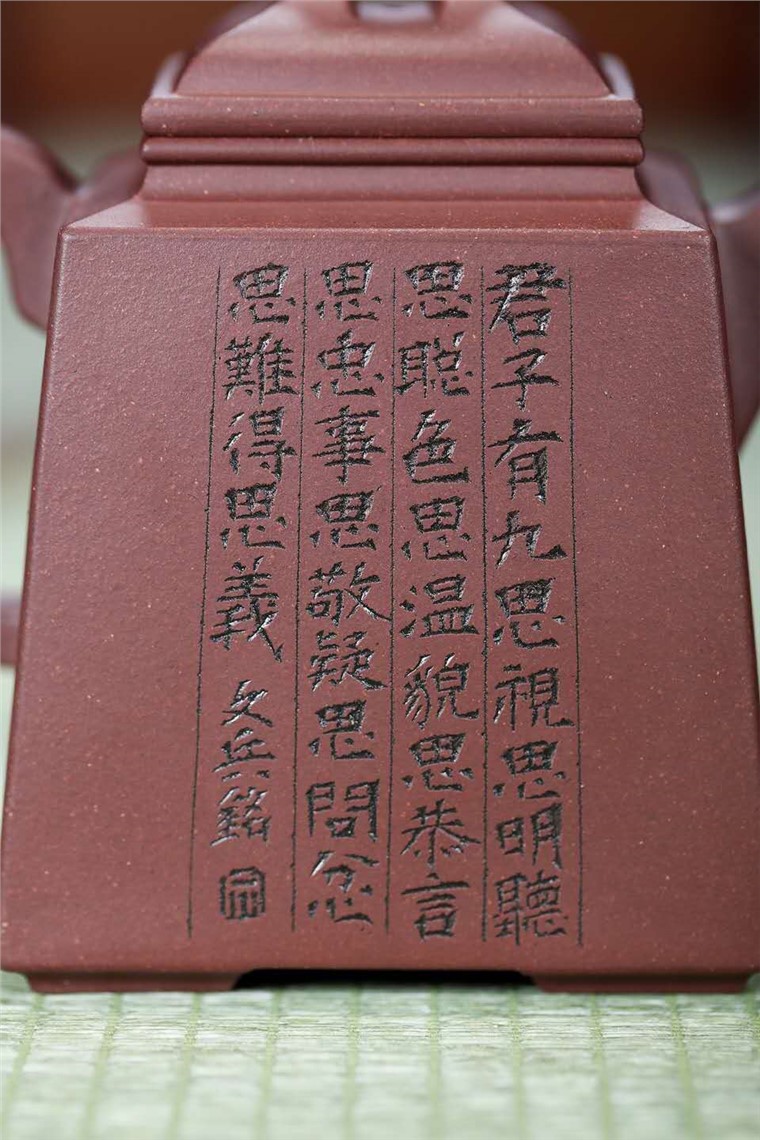 君子有九思視思明聽
思聪色思温貌思恭言
思忠事思敬疑思問忿
思難得思義 文兵銘